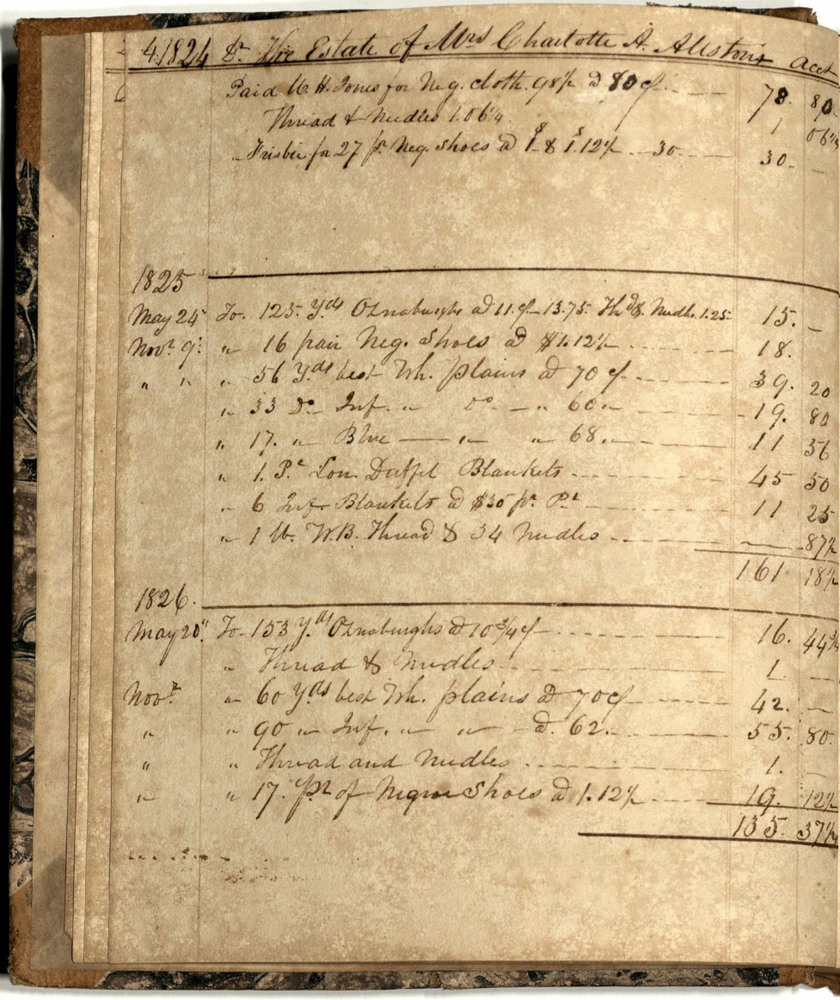 4. 1824 Dr. The Estate of Mrs Charlotte A. Allston's acct
Paid W. H. Jones for Neg. cloth. 98½ @ 80 cts. 78. 80
Thread & Needles 1.06¼ 1 06¼
" Frisbie for 27 pr. Neg. Shoes @ $1 & $1.12½ 30 30.
1825
May 24 To. 125. Yds Oznaburghs @ 11. cts 13.75. Thd & Needls. 1.25 15. –
Novr. 9. " 16 pair Neg. Shoes @ $1.12½ 18.
" " " 56 Yds best Wh. plains @ 70 cts 39. 20
" 33 Do Inf. " Do – " 60 " 19. 80
" 17. " Blue — " " 68. " 11 56
" 1. Pc Lon. Duffil Blankets 45 50
" 6 Inf. Blankets @ $30 pr. Pc 11 25
" 1 lb. W.B. Thread & 34 Needles — 87½
161 18½
1826.
May 20" To. 153 Yds Oznaburghs @ 10¾ cts 16. 44¾
" Thread & Needles 1. —
Novr. " 60 Yds best Wh. plains @ 70 cts 42. —
" " 90 " Inf. " " @. 62. 55. 80.
" " Thread and Needles 1.
" " 17. Pr of Negroe Shoes @ 1.12½ 19. 12½
135. 37½